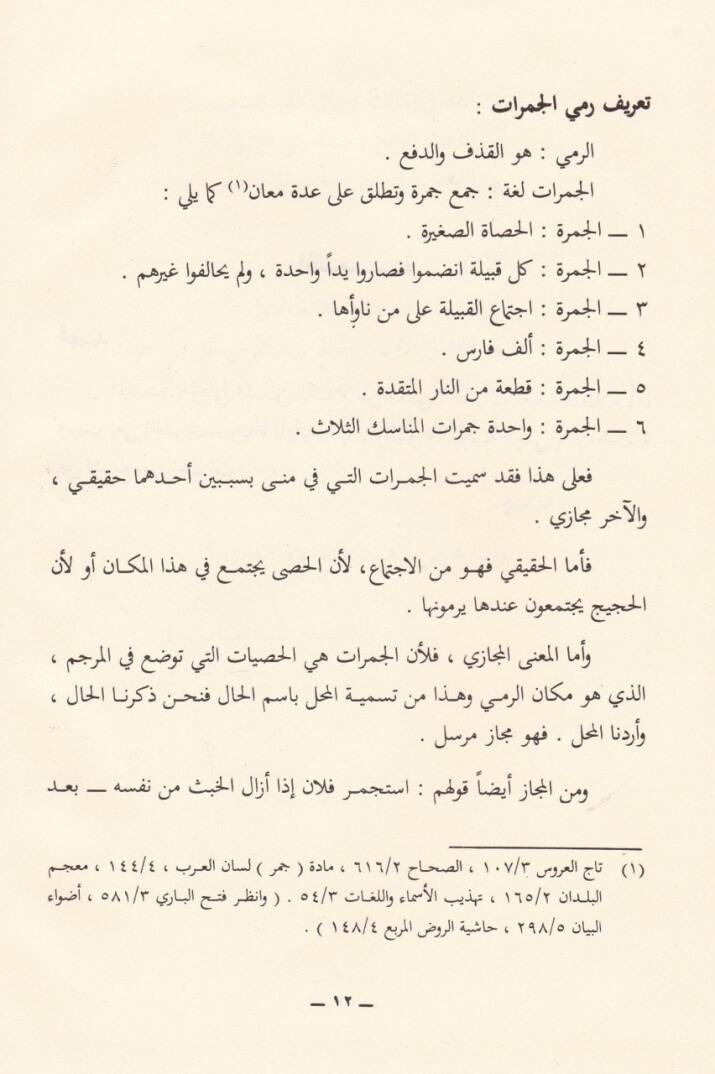 تعريف رمي الجمرات :
الرمي : هو القذف والدفع .
الجمرات لغة : جمع جمرة وتطلق على عدة معان(١) كما يلي :
١ ـــ الجمرة : الحصاة الصغيرة .
٢ ـــ الجمرة : كل قبيلة انضموا فصاروا يداً واحدة ، ولم يحالفوا غيرهم .
٣ ـــ الجمرة : اجتماع القبيلة على من ناوأها .
٤ ـــ الجمرة : ألف فارس .
٥ ـــ الجمرة : قطعة من النار المتقدة .
٦ ـــ الجمرة : واحدة جمرات المناسك الثلاث .
فعلى هذا فقد سميت الجمرات التي في منى بسببين أحدهما حقيقي ،
والآخر مجازي .
فأما الحقيقي فهو من الاجتماع، لأن الحصى يجتمع في هذا المكان أو لأن
الحجيج يجتمعون عندها يرمونها .
وأما المعنى المجازي ، فلأن الجمرات هي الحصيات التي توضع في المرجم ،
الذي هو مكان الرمي وهذا من تسمية المحل باسم الحال فنحن ذكرنا الحال ،
وأردنا المحل . فهو مجاز مرسل .
ومن المجاز أيضاً قولهم : استجمر فلان إذا أزال الخبث من نفسه ـــ بعد
(١) تاج العروس ١٠٧/٣ ، الصحاح ٦١٦/٢ ، مادة ( جمر ) لسان العرب ، ١٤٤/٤ ، معجم
البلدان ١٦٥/٢ ، تهذيب الأسماء واللغات ٥٤/٣ . ( وانظر فتح الباري ٥٨١/٣ ، أضواء
البيان ٢٩٨/٥ ، حاشية الروض المربع ١٤٨/٤ ) .
ـ ١٢ ـ